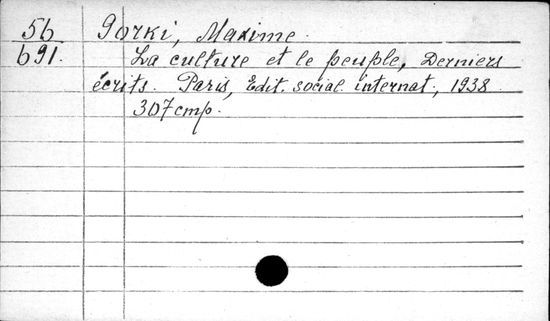 56 Gorki, Maxime.
691. La culture et le peuple, Derniers
écrits. Paris, Edit. social. internat., 1938.
307 cmp.